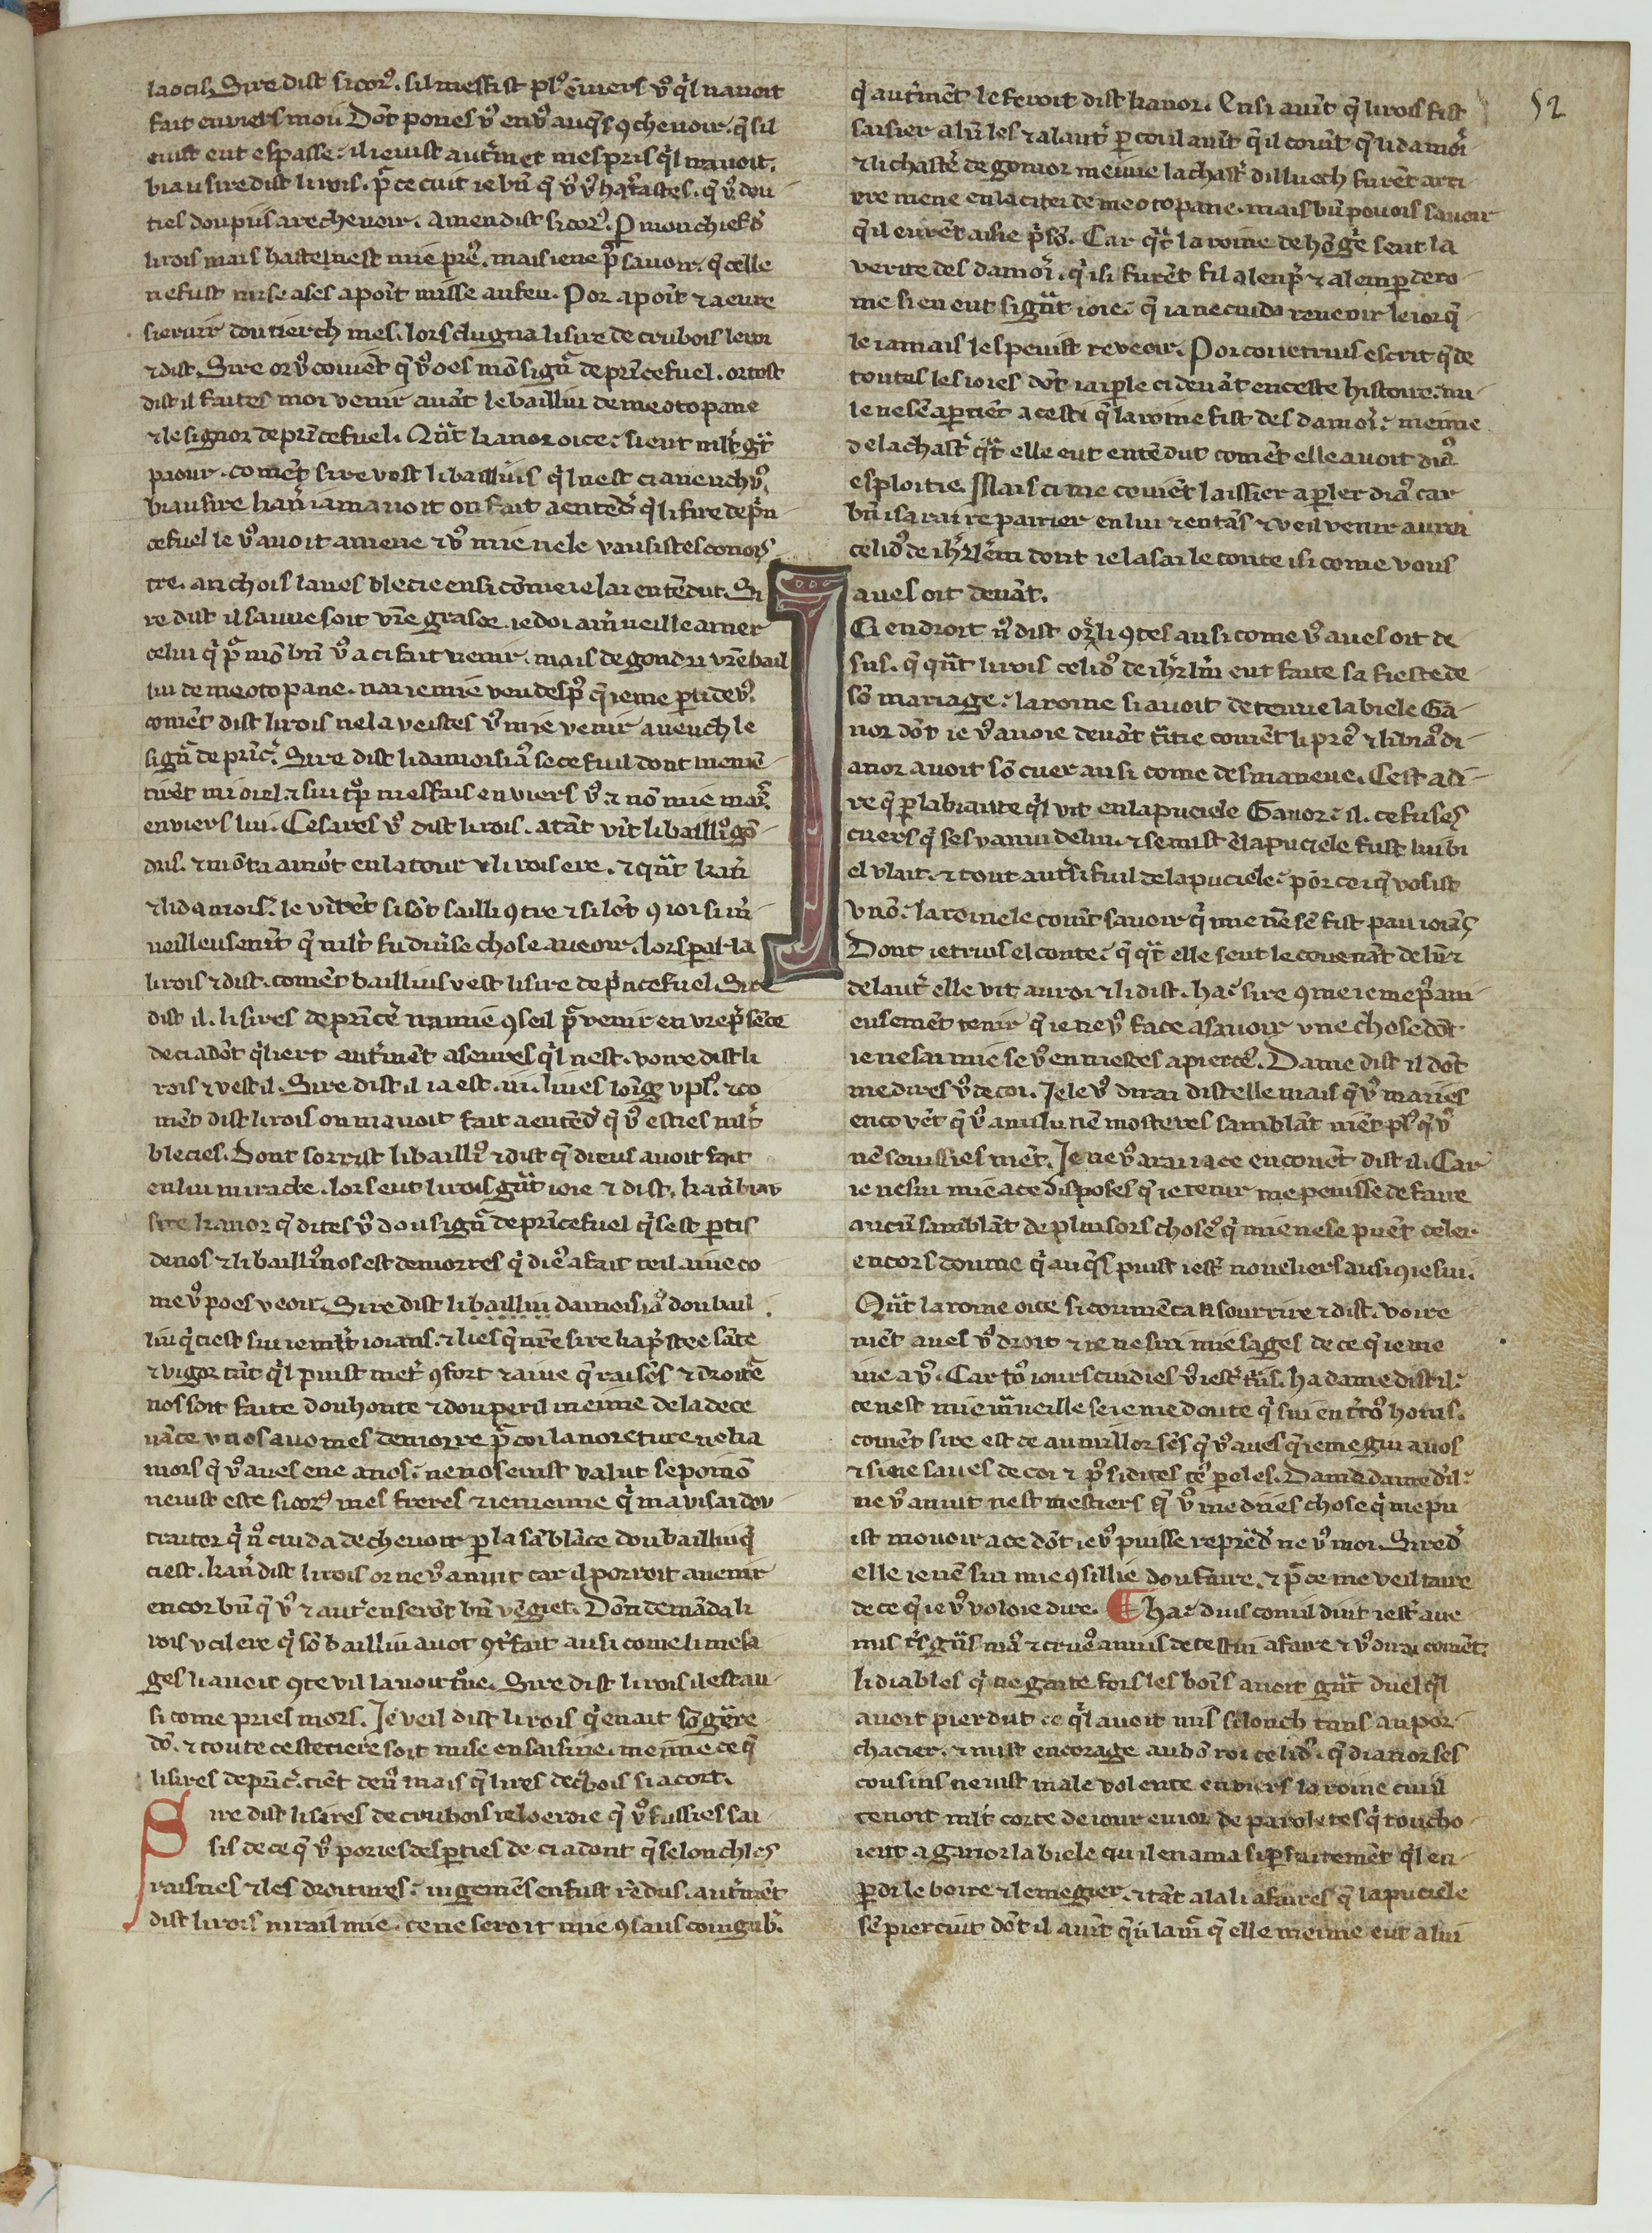 laocis. Sire dist sicor᷒. sil mesfist pl᷒ ẽuiers v᷒ q̓l nauoit
fait enuiers moi. Dõt poues v᷒ en v᷒ auq̃s ꝯcheuoir. q̃ sil
euist eut espasse. il ieuist aut̃met mespris q̓l nauoit.
biau sire dist li rois. p̃ ce cuit ie bñ q̃ v᷒ v᷒ hast̃astes. q̃ v᷒ dou
ties dou pris a recheuoir. Amen dist sicor᷒. ꝑ mon chief d̃
li rois mais haste nest mie pre᷒. mais iene p̃ sauoir. q̃ celle
ne fust mise a ses a poĩt misse au feu. Por a poĩt ⁊ a eure
seruir dou tierch mes. lors clugna li sire de crubois le roi
⁊ dist. Sire or v᷒ couiẽt q̃ v᷒ oes mõ signr̃ de prĩcefuel. or tost
dist il faites moi venir auãt le bailliu de meotopane
⁊ le signor de prĩcefuel. Qũt kanor oi ce. si eut mlt̃ gr̃t
paour. comẽt sire vost li baillius q̓l nest ci auench v᷒.
biau sire kañ iamauoit on fait a entẽd̃ q̓ li sire de pñ
cefuel le v᷒ auoit amene ⁊ v᷒ mie nele vausistes conois
tre. anchois laues blecie ensi cõme ie lai entẽdut. Si
re dist il sauue soit vr̃e grasce. ie doi a m̃ueille amer
celui q̓ p̃ mõ bñ v᷒ a ci fait venir. mais de gondri vr̃e bail
liu de meotopane. nai ie mie veu despũ q̃ ieme ꝑti de v᷒.
comẽt dist li rois nela veistes v᷒ mie venir auench le
signr̃ de prĩc̃. Sire dist li damoisia᷒ se ce fu il dont mẽ mẽ
tirẽt mi oiel ⁊ sui tp̃ mesfais enuiers v᷒ ⁊ nõ mie mais̃
enuiers lui. Cesares v᷒ dist li rois. atãt vĩt li bailli᷒ gõ
dris. ⁊ mõta amõt en la tour v li rois ere. ⁊ qũt kañ
⁊ li damois᷒. le virẽt si sõt sailli ꝯtre ⁊ silẽt ꝯioi si m̃
ueilleusemt̃ q̃ mlt̃ fu diuerse chose a ueoir. lors parla
li rois ⁊ dist. comẽt baillius v est li sire de prĩcefuel. Sire
dist il. li sires de prĩcẽ na mie ꝯseil p̃ venir en vr̃e p̃sẽce
deciadõt q̓l iert aut̃mẽt aseures q̓l nest. voire dist li
rois ⁊ v est il. Sire dist il ia est. iiii. liues loĩg v pl᷒. ⁊ co
mẽt dist li rois on mauoit fait a entẽd̃ q̃ v᷒ esties mlt̃
blecies. Dont sorrist li bailli᷒ ⁊ dist q̃ dieus auoit fait
en lui miracle. lors eut li rois gr̃t ioie ⁊ dist. kañ biau
sire kanor q̃ dites v᷒ dou signr̃ de prĩcefuel q̓ sest ꝑtis
de nos ⁊ li bailli᷒ nos est demorres q̓ die᷒ a fait teil aiue co
me v᷒ poes veoir. Sire dist li bailliu damoisia᷒ dou bail
liu q̓ ci est sui ie mlt̃ ioians. ⁊ lies q̃ nr̃e sire li a p̃stee sãte
⁊ vigor tãt q̓l puist met̃ ꝯfort ⁊ aiue q̃ raisõs ⁊ droit̃e
nos soit faite dou honte ⁊ dou peril meime dela dece
uãce v nos auomes demorre p̃ coi la noreture nelia
mors q̃ v᷒ aues ene a nos. ne nos euist valut se pormõ
neuist este sicor᷒ mes freres ⁊ ie meime q̓ mauisai dou
traitor q̓ n᷒ cuida decheuoir ꝑ la sãblãce dou bailliu q̓
ci est. kañ dist li rois or ne v᷒ anuit car il porroit auenir
encor bñ q̃ v᷒ ⁊ aut̃ en serõt bñ vẽgiet. Dõc demãda li
rois v cil ere q̓ sõ bailliu auot ꝯt̃fait ausi come li mesa
ges li auoit ꝯte v il lauoit tue. Sire dist li rois il est au
si come pries mors. Je veil dist li rois q̃ en ait sõ gẽrre
dõ. ⁊ toute ceste tiere soit mise en saisine. meime ce q̃
li sires de prĩc̃. tiẽt de v᷒ mais q̃ li res de q̃bois si acort.
Sire dist li sires de crubois ne loeroie q̃ v᷒ fussies sai
sis de ce q̃ v᷒ pories desꝑties de ciadont q̃ selonch les
raisnes ⁊ les droitures. iugemẽs en fust rẽdus. aut̃mẽt
dist li rois nirail mie. ce ne seroit mie ꝯsaus coingub̃.
q̓ aut̃mẽt le feroit dist kanor. Ensi auĩt q̃ li rois fist
saisier a lũ les ⁊ alaut̃ ꝑ coi il auĩt q̃ il couĩt q̃ li damoi᷒
⁊ li chast̃ de gomor meime la chast̃ dilluech furẽt arri
ere mene en la citei de meotopane. mais bñ poues sauoir
q̃ il eurẽt aisie p̃sõ. Car qũt la roine de hõg̃e seut la
verite des damoi᷒. q̓ isi furẽt fil a lenp̃ ⁊ al emꝑdero
me si en eut si gr̃t ioie. q̃ ia ne cuida reuenir le ior q̃
le iamais les peuist reueoir. Por coi truis escrit q̃ de
toutes les ioies dõt iai ꝑle ci deuãt en ceste histoire. nu
le ne sẽ aꝑtiẽt a cesti q̃ la roine fist des damoi᷒. meime
de la chast̃ qũt elle eut entẽdut comẽt elle auoit dia᷒
esploitie. Mais ci me couiẽt laissier a ꝑler dia᷒ car
bñ i sarai repairier en lui ⁊ en tãs ⁊ veil venir au roi
celid᷒ de ih̃rlẽm dont ie lasai le conte isi come vous
aues oit deuãt.
Ci endroit n᷒ dist or li ꝯtes ausi come v᷒ aues oit de
sus. q̃ qũt li rois celid᷒ de ih̃rlm̃ eut faite sa fieste de
sõ mariage. la roine si auoit detenue la biele Ga
nor dõt ie v᷒ auoie deuãt t̃itie comẽt li pre᷒ ⁊ li biau᷒ di
anor auoit sõ cuer ausi come desmaneue. Cest a di
re q̃ ꝑ la biaute q̓l vit en la puciele Ganor. il. ce fu ses
cuers q̃ ses vanui de lui. ⁊ se mist ẽ la puciele fust lui bi
el v lait. ⁊ tout aut̃si fu il de la puciele. por ce q̃ vosist
v nõ. la roine le couĩt sauoir q̓ mie nẽ sẽ fist pau ioiãs
Dont ie truis el conte. q̃ qũt elle seut le couenãt de lũ ⁊
de laut̃ elle vit au roi ⁊ li dist. ha. sire ꝯme ie me p̃s ani
eusemẽt tenir q̃ ie ne v᷒ face asauoir vne chose dõt
ie ne sai mie se v᷒ en niestes apiertet᷒. Dame dist il dõt
me dires v᷒ de coi. Je le v᷒ dirai dist elle mais q̃ v᷒ maries
encovẽt q̃ v᷒ a nului nẽ mosteres samblãt niẽt pl᷒ q̃ v᷒
nẽ seuissies niẽt. Je ne v᷒ arai ia ce enconẽt dist il. Car
ie ne sui mie a ce disposes q̃ ie tenir me peuisse de faire
aucũ samblãt de pluisors chose᷒ q̓ mie ne se puẽt celer.
encors donme q̓ auq̃s puist iest̃ noueliers ausi ꝯ ie sui.
Qũt la roine oi ce si coumẽca a sourrire ⁊ dist. voire
mẽt aues v᷒ droit ⁊ ie ne sui mie sages de ce q̃ ie me
uie a v᷒. Car to᷒ iours cuidies v᷒ iest̃ t̃is. ha dame dist il.
ce nest mie m̃ueille se ie me doute q̓ sui en t̃ro᷒ homs.
comẽt sire est ce au millor sẽs q̃ v᷒ aues q̃ ieme giu a uos
⁊ si ne saues de coi ⁊ p᷒ si dites te᷒ ꝑoles. Dama dame d̃ il.
ne v᷒ anuit nest mestiers q̃ v᷒ me dites chose q̓ me pu
ist mouoir a ce dõt ie v᷒ puisse reprẽd̃ ne v᷒ moi. Sire d̃
elle ie nẽ sui mie ꝯsillie dou faire. ⁊ p̃ ce me veil taire
de ce q̃ ie v᷒ voloie dire. ¶ Ha. dius com il dut iest̃ aue
nis t̃s gr̃s ma᷒ ⁊ crue᷒ anuis de cestui afaire ⁊ v᷒ dirai comẽt.
li diables q̓ ne gaite fors les boĩs auoit gr̃t duel q̓l
auoit pierdut ce q̓l auoit mis si lonch tans au por
chacier. ⁊ mist en corage au bõ roi celid᷒. q̃ dianor ses
cousins neuist male volente enuiers la roine cui il
tenoit mlt̃ corte de iour en ior de paroletes q̓ toucho
ient a ganor la biele qu il en ama si ꝑfaitemẽt q̓l en
ꝑdi le boire ⁊ le megier. ⁊ tãt ala li afaires q̃ la puciele
sẽ pierciut dõt il auĩt q̃ il lam̃ q̃ elle meime eut a lui
52